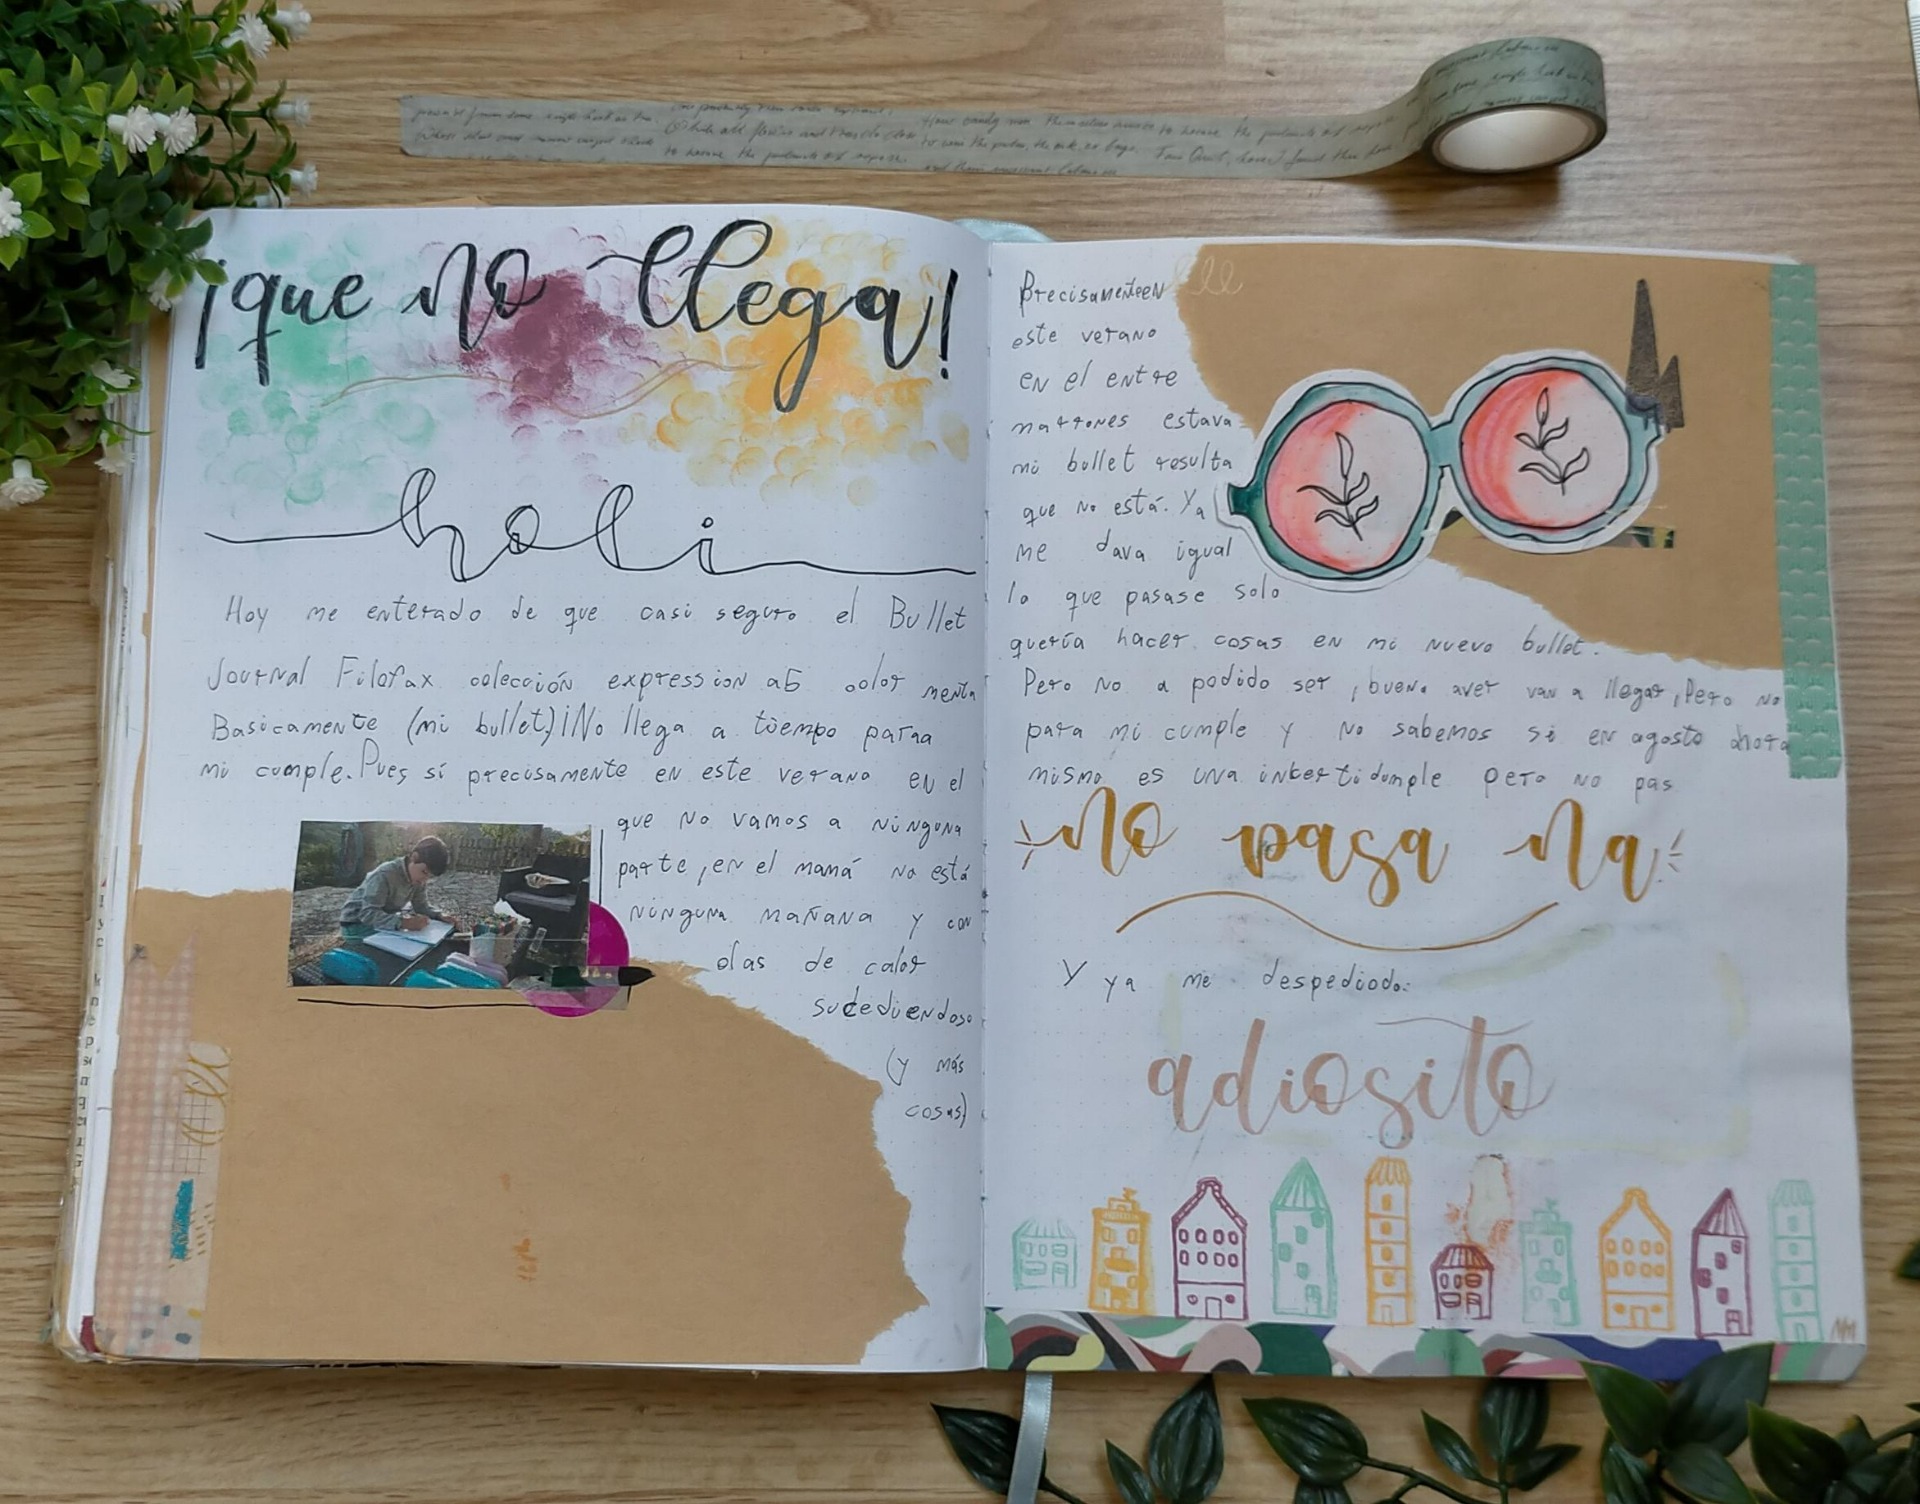 ¡que no llega!
holi
Hoy me enterado de que casi seguro el Bullet
Journal Filofax colección expression a5 color menta
Basicamente (mi bullet)¡No llega a tiempo paraa
mi cumple. Pues sí precisamente en este verano en el
que no vamos a ninguna
parte, en el mamá no está
ninguna mañana y con
olas de calor
sucediendose
(y más
cosas)
Precisamente en
este verano
en el entre
marrones estava
mi bullet resulta
que no está. Ya
me dava igual
lo que pasase solo
quería hacer cosas en mi nuevo bullet.
Pero no a podido ser, bueno aver van a llegar, Pero no
para mi cumple y no sabemos si en agosto ahora
mismo es una incertidumple pero no pas
no pasa na
Y ya me despediodo:
adiosito